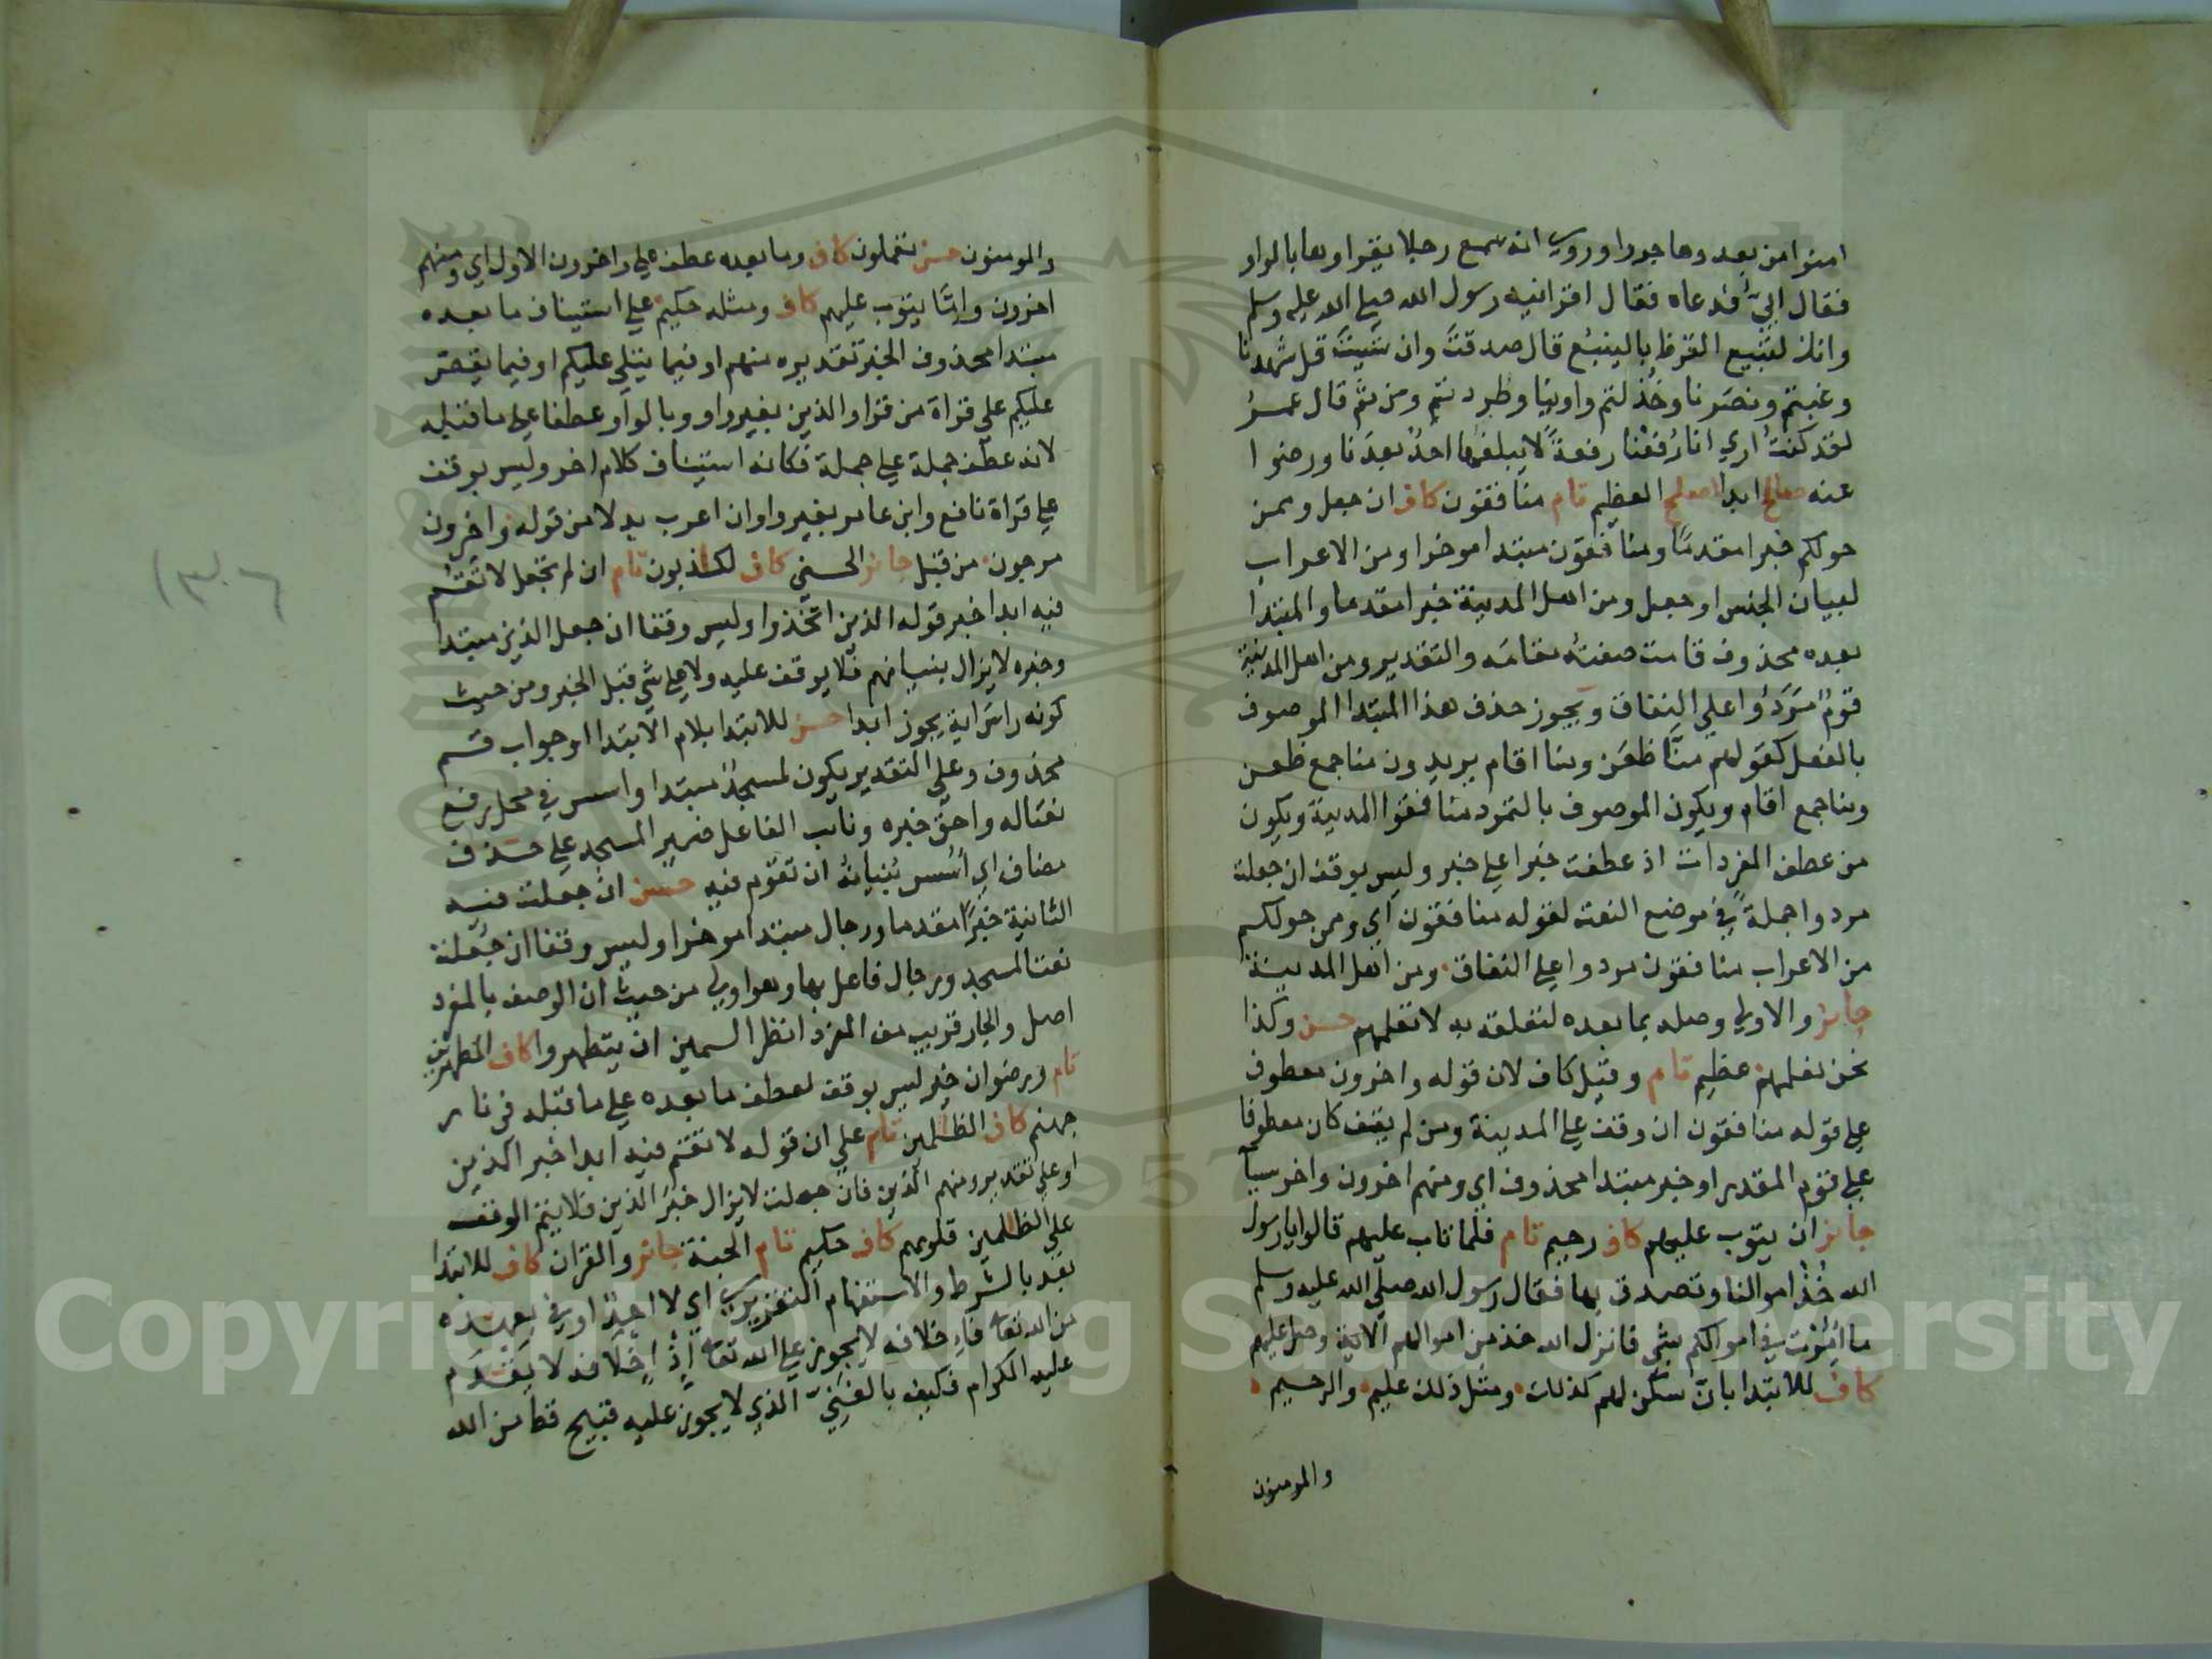 امنوا من بعد وهاجروا وروي انه سمع رجلا يقراوها بالواو
فقال ابيّ فدعاه فقال اقرانيه رسول الله صلي الله عليه وسلم
وانك لتبيع القرظ بالينبع قال صدقتَ وان شيتَ قل شهدنا
وغبتم ونصرنا وخذلتم واوينا وطردتم ومن ثم قال عمرُ
لقد كنتُ اري انا رُفعْنا رفعةً لا يبلغها احدٌ بعدَنا ورضوا
عنه صالح ابدا اصلح العظيم تام منافقون كاف ان جعل وممن
حولكم خبرا مقدمًا ومنافقون مبتدا موخرا ومن الاعراب
لبيان الجنس او جعل ومن اهل المدينة خبرا مقدما والمبتدا
بعده محذوف قامت صفتُه مقامَه والتقدير ومن اهل المدينة
قومٌ مَرَدُوا علي النفاق ويجوز حذف هذا المبتدا الموصوف
بالفعل كقولهم منَّا ظعَن ومنا اقام يريدون منا جمع ظعن
ومنا جمع اقام ويكون الموصوف بالتمرد منافقوا المدينة ويكون
من عطف المفردات اذ عطفت خبرا علي خبر وليس بوقف ان جعلت
مردوا جملةً في موضع النعت لقوله منافقون اي وممن حولكم
من الاعراب منافقون مردوا علي النفاق ومن اهل المدينة
جائز والاولي وصله بما بعده لتعلقه به لا تعلمهم حسن وكذا
نحن نعلمهم عظيم تام وقيل كاف لان قوله واخرون معطوف
علي قوله منافقون ان وقف علي المدينة ومن لم يقف كان معطوفا
علي قوم المقدر او خبر مبتدا محذوف اي ومنهم اخرون واخر سيأ
جائز ان يتوب عليهم كاف رحيم تام فلما تاب عليهم قالوا يا رسول
الله خُذْ اموالنا وتصدق بها فقال رسول الله صلّي الله عليه وسلم
ما اُمِرْت في اموالكم بشي فانزل الله خذ من اموالهم الاية وصل عليهم
كاف للابتدا بانّ سكن لهم كذلك ومثل ذلك عليم والرحيم
والمومنون
والمومنون حسن تعملون كاف وما بعده عطف علي واخرون الاول اي ومنهم
اخرون وامَّا يتوب عليهم كاف ومثله حكيم علي استيناف ما بعده
مبتدا محذوف الخبر تقديره منهم او فيما يتلي عليكم او فيما يقص
عليكم علي قراة من قرا والذين بغير واو وبالواو عطفا علي ما قبله
لانه عطف جملة علي جملة فكانه استيناف كلام اخر وليس بوقف
علي قراة نافع وابن عامر بغير واو ان اعرب بدلا من قوله واخرون
مرجون من قبل جائز الحسني كاف لكاذبون تام ان لم تجعل لا تقم
فيه ابدا خبر قوله الذين اتخذوا وليس وقفا ان جعل الذين مبتدا
وخبره لا يزال بنيانهم فلا يوقف عليه ولا علي شي قبل الخبر ومن حيث
كونه راس اية يجوز ابدا حسن للابتدا بلام الابتدا او جواب قسم
محذوف وعلي التقدير يكون لمسجدٌ مبتدا واسس في محل رفع
نعتا له واحقّ خبره ونايب الفاعل ضمير المسجد علي حذف
مضاف اي اُسِّس بُنيانُه ان تقوم فيه حسن ان جعلت فيه
الثانية خبرًا مقدما ورجال مبتدا موخرا وليس وقفا ان جعلته
نعتا لمسجد ورجال فاعل بها وهو اولي من حيث ان الوصف بالمفرد
اصل والجار قريب من المفرد انظر السمين ان يتطهروا كاف المطهرين
تام ورضوان خير ليس بوقف لعطف ما بعده علي ما قبله في نار
جهنم كاف الظالمين تام علي ان قوله لا تقم فيه ابدا خبر الذين
او علي تقدير ومنهم الذين فان جعلت لا يزال خبرَ الذين فلا يتم الوقف
علي الظالمين قلوبهم كاف حكيم تام الجنة جائز والقران كاف للابتدا
بعد بالشرط والاستفهام التقريري اي لا احدٌ اوفي بعهده
من الله تعالي فاِخلافه لا يجوز علي الله تعالي اِذْ اِخلافه لا يَقْدَم
عليه الكرام فكيف بالغنيّ الذي لا يجوز عليه قبيح قط من الله